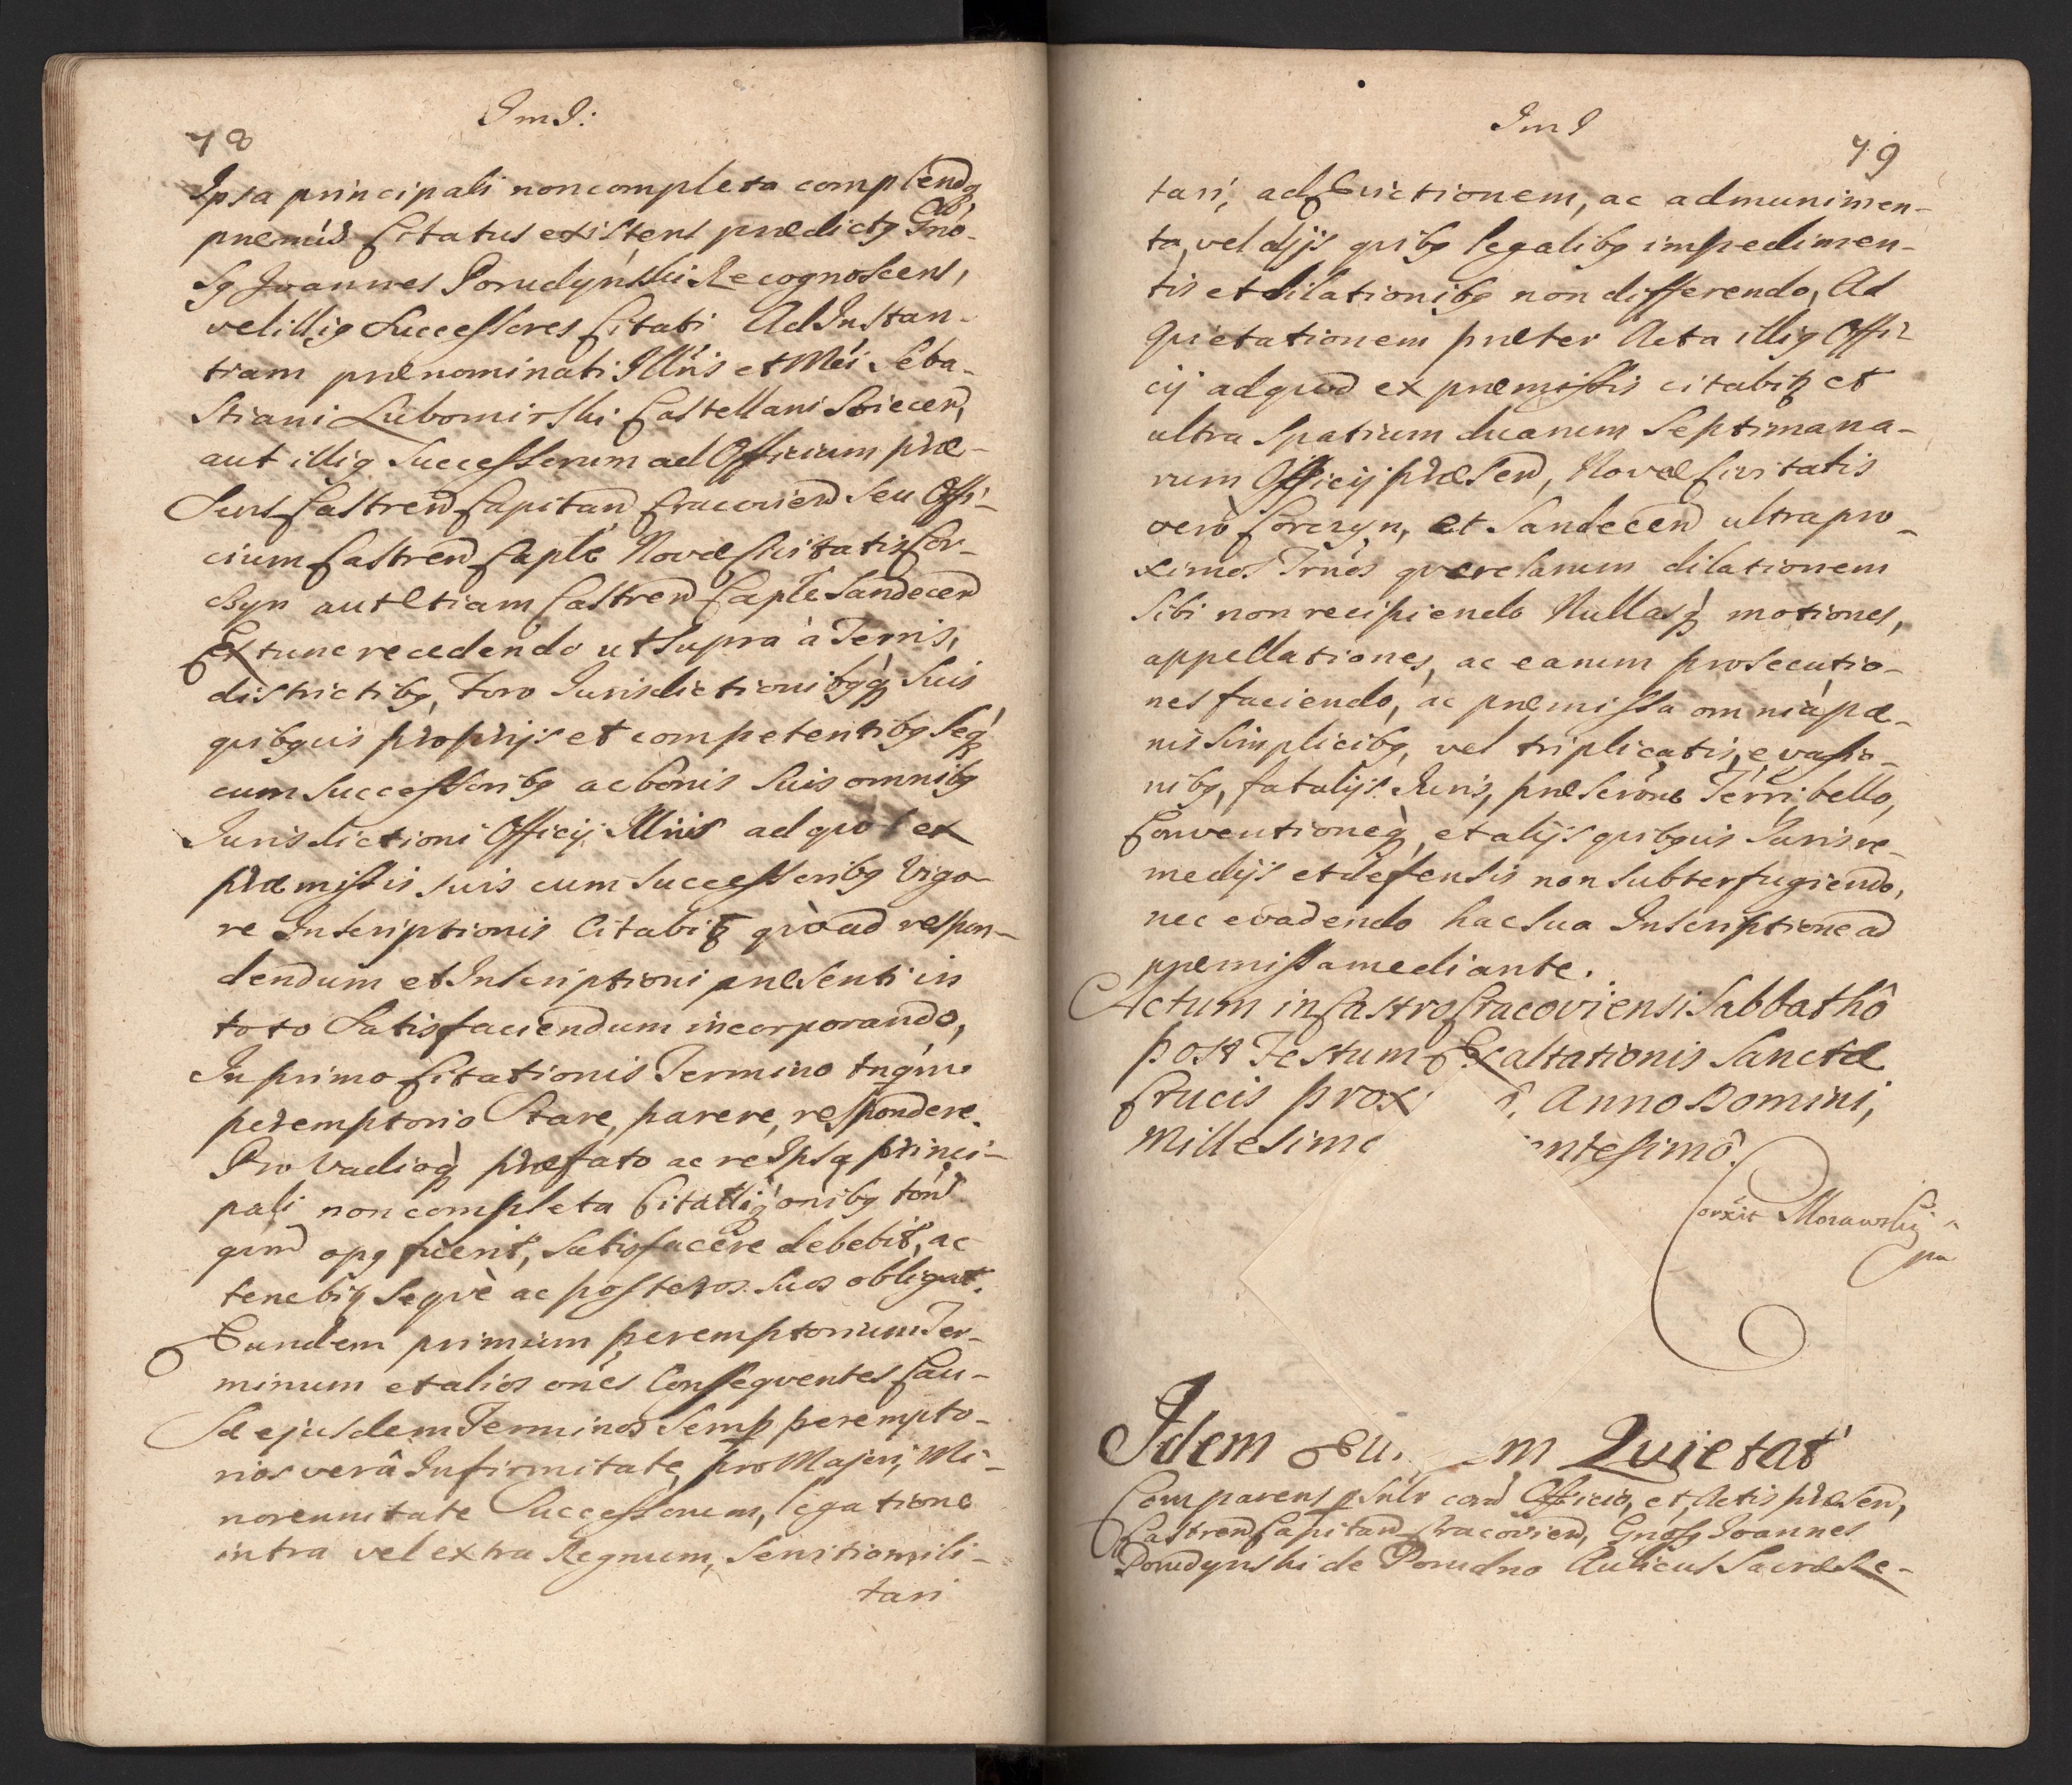 JmJ:
78
Ipsa principali non completa complendq
præmis Citatus existens prædictq Gno-
sq Joannes Porudynski Recognoscens,
vel illiq Successores Citati Ad Instan-
tiam prænominati Illris et Mci Seba-
stiani Lubomirski Castellani Woiecen,
aut illiq Successorum ad Officium præ-
sens Castren Capitan Cracovien seu Offi-
cium Castren Caple Novæ Civitatis Cor-
czyn aut etiam Castren Caple Sandecen
Ex tunc recedendo ut supra à Terris,
districtibq, foro Jurisdictionibqq suis
quibquis proprijs et competentibq seq
cum successoribq ac bonis suis omnibq
Jurisdictioni Officij Illius ad quod ex
præmissis suis cum successoribq vigo-
re Inscriptionis Citabit quoad respon-
dendum et Inscriptioni præsenti in
toto Satisfaciendum incorporando,
In primo Citationis Termino tnqm
peremptorio Stare, parere, respondere.
Pro Vadioq præfato ac re Ipsa princi-
pali non completa onibq
opq fuerit, satisfacere debebit, ac
tenebit seqvè ac posteros suos obligat.
Eundem primum peremptorium Ter-
minum et alios ones Conseqventes Cau-
sæ ejusdem Terminos semp perempto-
rios verâ Infirmitate, pro Majori, Mi-
norennitate Successorum, legatione
intra vel extra Regnum, servitio mili-
tari
JmJ
79
tari, ad Evictionem, ac ad munimen-
ta, vel alijs quibq legalibq impedimen-
tis et dilationibq non differendo, Ad
Quietationem præter Acta illiq Offi-
cij ad quod ex præmissis citabit et
ultra spatium duarum Septimana-
rum Officij præsen, Novæ Civitatis
verò Corczyn, et Sandecen ultra pro-
ximos Trnos qverelarum dilationem
sibi non recipiendo Nullasq motiones,
appellationes, ac earum prosecutio-
nes faciendo, ac præmissa omnia pæ-
nis simplicibq, vel triplicatis, evasio-
nibq, fatalijs Juris, præscrône Terri, bello,
Conventioneq, et alijs quibquis Juris re-
medijs et defensis non subterfugiendo,
nec evadendo hac sua Inscriptione ad
præmissa mediante.
Actum in Castro Cracoviensi Sabbathô
post Festum Exaltationis Sanctæ
Crucis prox ô, Anno Domini,
Millesimo entesimô.
Corxit Morawsky
mp
Idem Eu m Quietat
Comparens psnlr corâ Officio, et Actis præsen,
Castren Capitan Cracovien, Gnosq Joannes
Porudynski de Porudno Aulicus Sacræ Re-